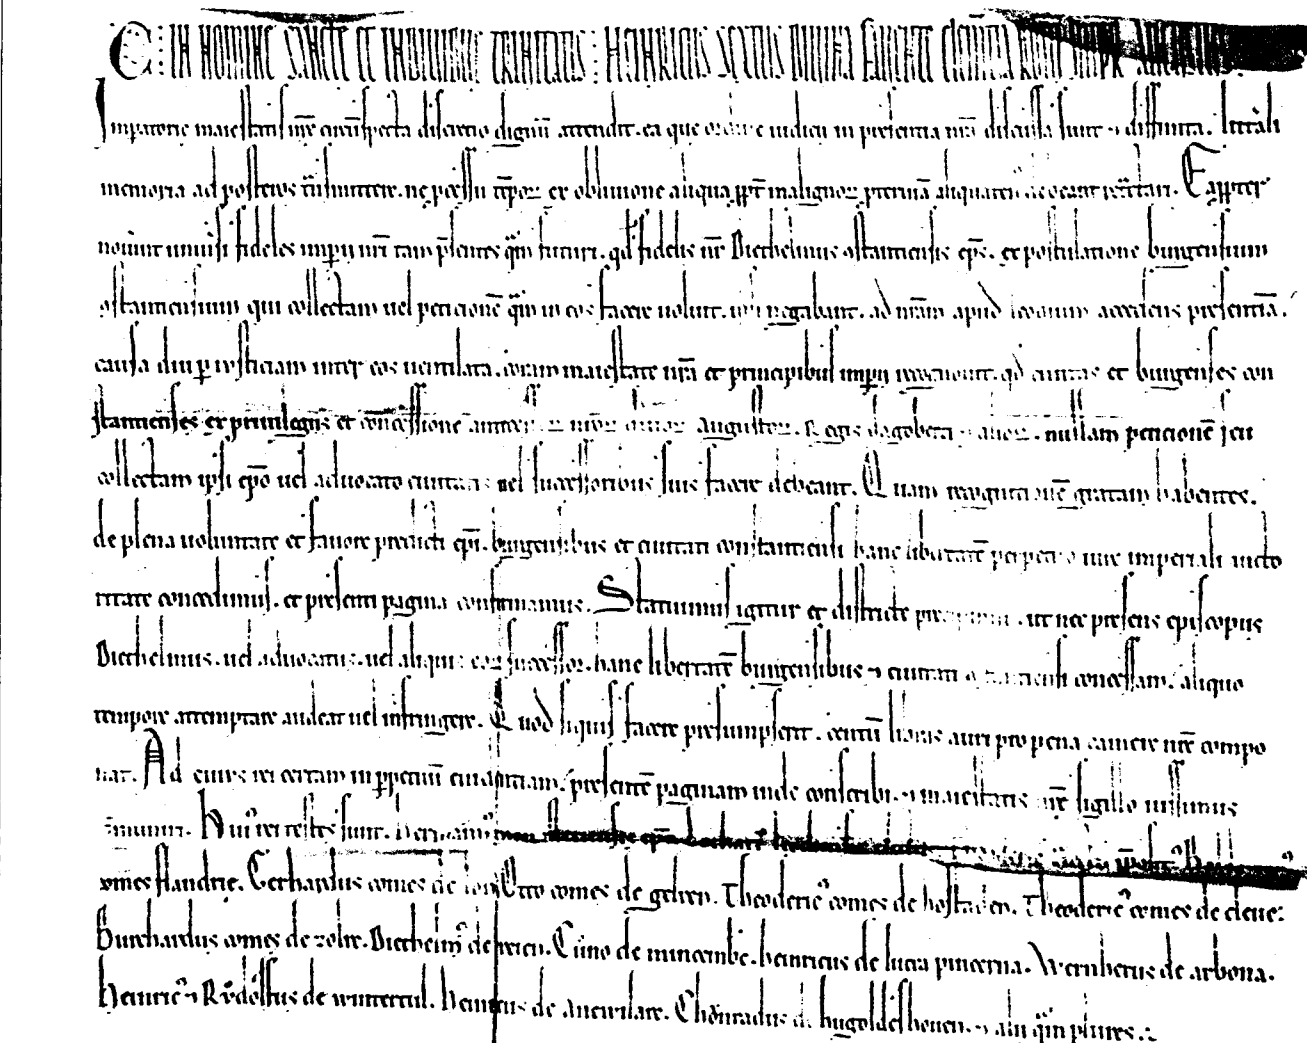 C : IN NOMINE SANCTE ET INDIVIDUE TRINITATIS : HEINRICUS SEXTUS DIVINA FAVENTE CLEMENTIA
Imperatorie maiestatis nr̄e circūspecta discretio dignū attendit. ea que ordine iudicii in presentia nr̄a discussa sunt ⁊ diffinita. litt̄ali
memoria ad posteros tn̄smittere. ne ꝑcessu tēpoꝝ ex oblivione aliqua malignoꝝ aliquaten. Eaꝓpter
nov̄int univ̄si fideles imperii nr̄i tam p̄sentes qͣm futuri. qd fidelis nr̄ Diethelmus ꝯstantiensis ep̄s. ex postulatione burgensium
ꝯstantiensium qui collectam vel peticionē qͣm in eos facere voluit. negabant. ad nrām apud leodium accedens presentiā.
causa diu ꝑ iusticiam inter eos ventilata. coram maiestate nrā et principibus imperii recognovit. qd civitas et burgenses con
stantienses ex privilegiis et concessione antecessoꝝ nroꝝ augustoꝝ. Regis dagoberti ⁊ alioꝝ. nullam peticionē seu
collectam ipsi ep̄o vel advocato civitatis vel successoribus suis facere debeant. Quam recognitionē gratam habentes.
de plena voluntate et favore predicti ep̄i. burgensibus et civitati constantiensi hanc libertatē perpetuo iure imperiali aucto
ritate concedimus. et presenti pagina confirmamus. Statuimus igitur et districte precipimus. ut nec presens episcopus
Diethelmus. vel advocatus. vel aliquis eoꝝ successoꝝ. hanc libertatē burgensibus ⁊ civitati ꝯstantiensi concessam. aliquo
tempore attemptare audeat vel infringere. Quod siquis facere presumpserit. centū libras auri pro pena camere nrē compo
nat. Ad cuius rei certam in ꝑpetuū evidentiam. presentē paginam inde conscribi. ⁊ maiestatis nrē sigillo iussimus
cōmuniri. Huiꝰ rei testes sunt. hermannꝰ
comes flandrie. Gerhardus comes de lon. Otto comes de gelren. Theodericꝰ comes de hostaden. Theodericꝰ comes de cleve.
Burchardus comes de zolre. Diethelmꝰ de Cūno de mincenbc. heinricus de lutra pincerna. Wernherus de arbona.
heinricꝰ ⁊ Rŏdolfus de wintertul. heinricus de Chŏnradus de hugoldeshoven. ⁊ alii qͣm plures.